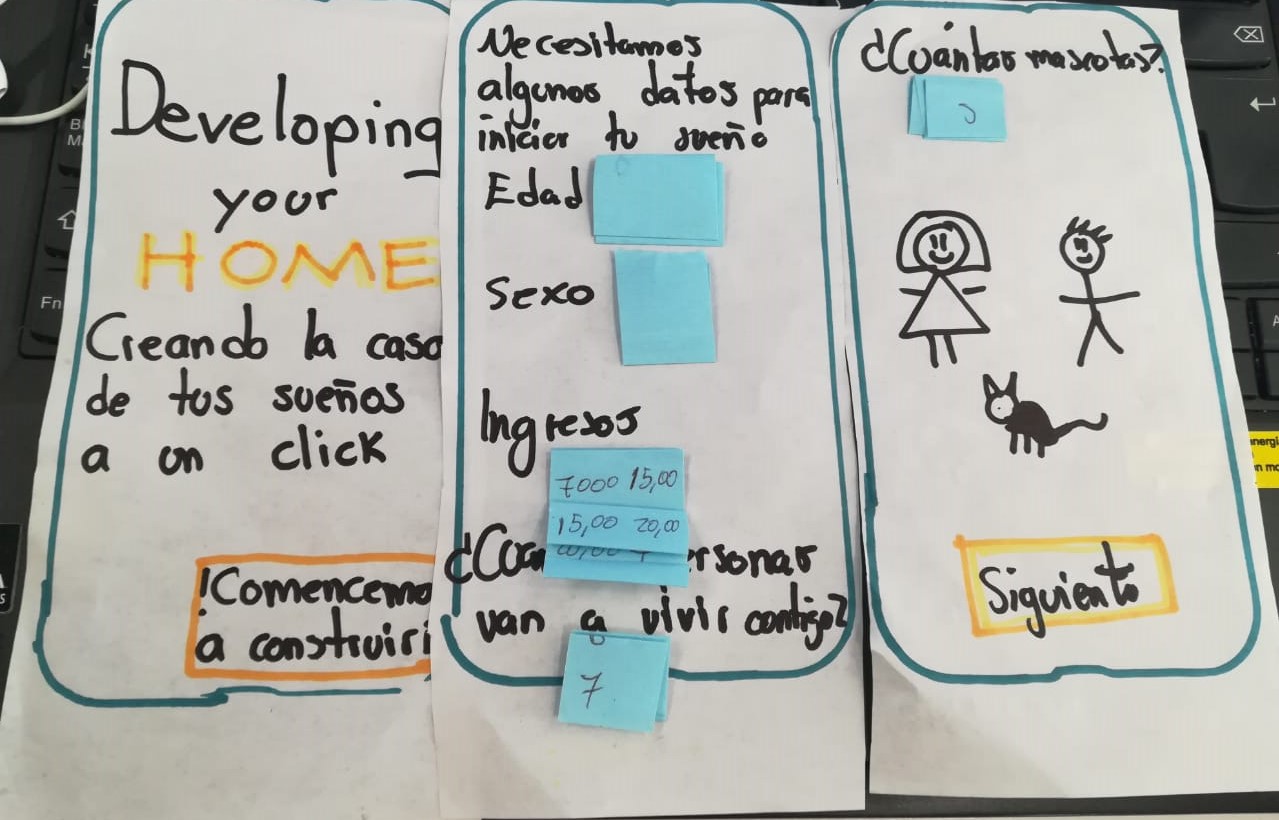 Developing
your
HOME
Creando la casa
de tus sueños
a un click
¡Comencemo
a construir¡
Necesitamos
algunos datos para
iniciar tu sueño
Edad
Sexo
Ingresos
7000 15,00
15,00 20,00
van a vivir contigo?
7
¿Cuántas mascotas?
Siguiente
Fn